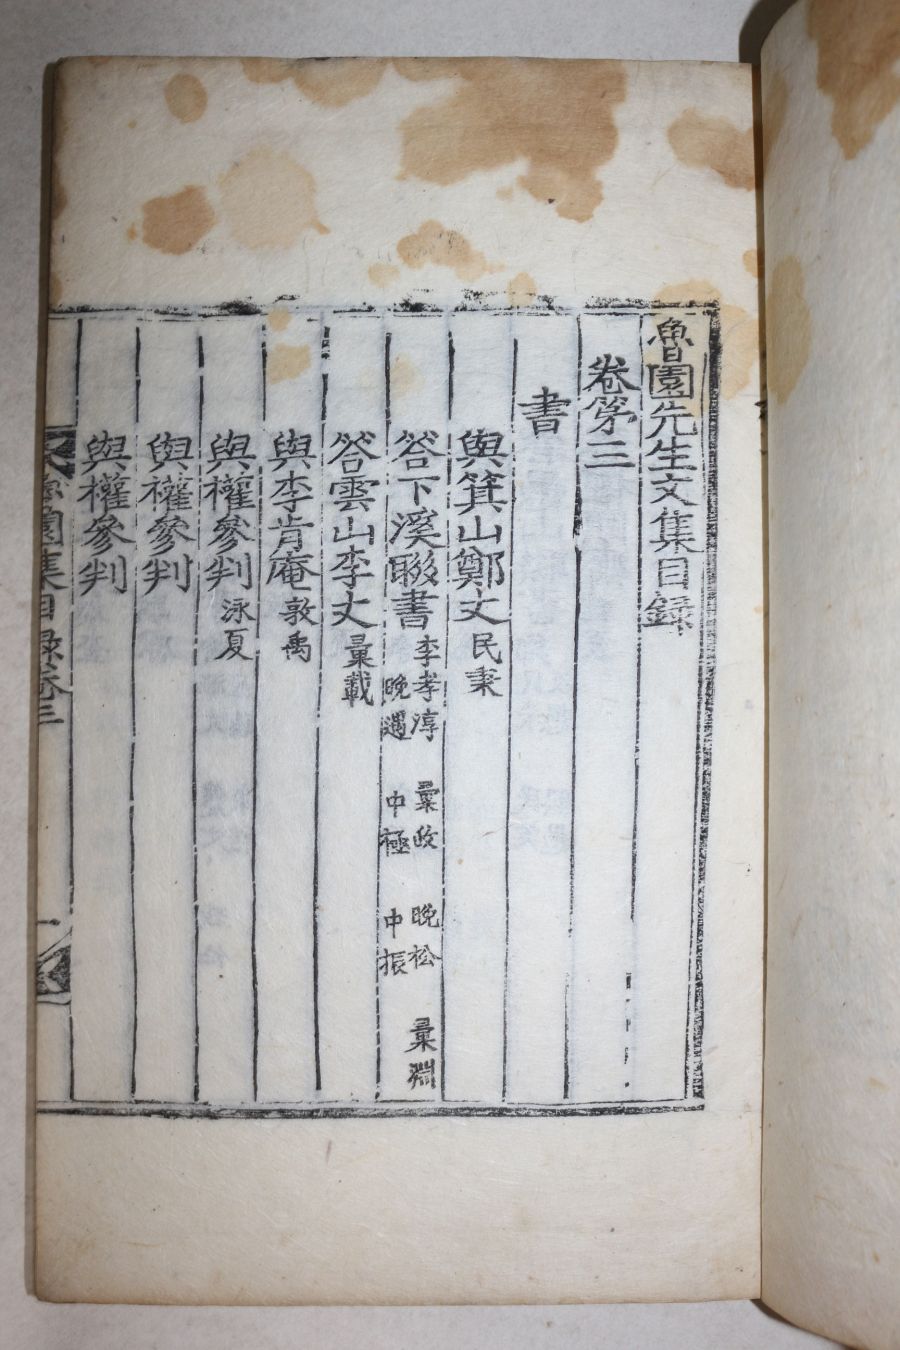 魯園先生文集目錄
卷第三
書
與箕山鄭丈民秉
答下溪聯書李孝淳 彙政 晚松 彙淵
晚遇 中極 中振
答雲山李丈彙載
與李肯庵敦禹
與權參判泳夏
與權參判
與權參判
魯園集目錄卷三 一